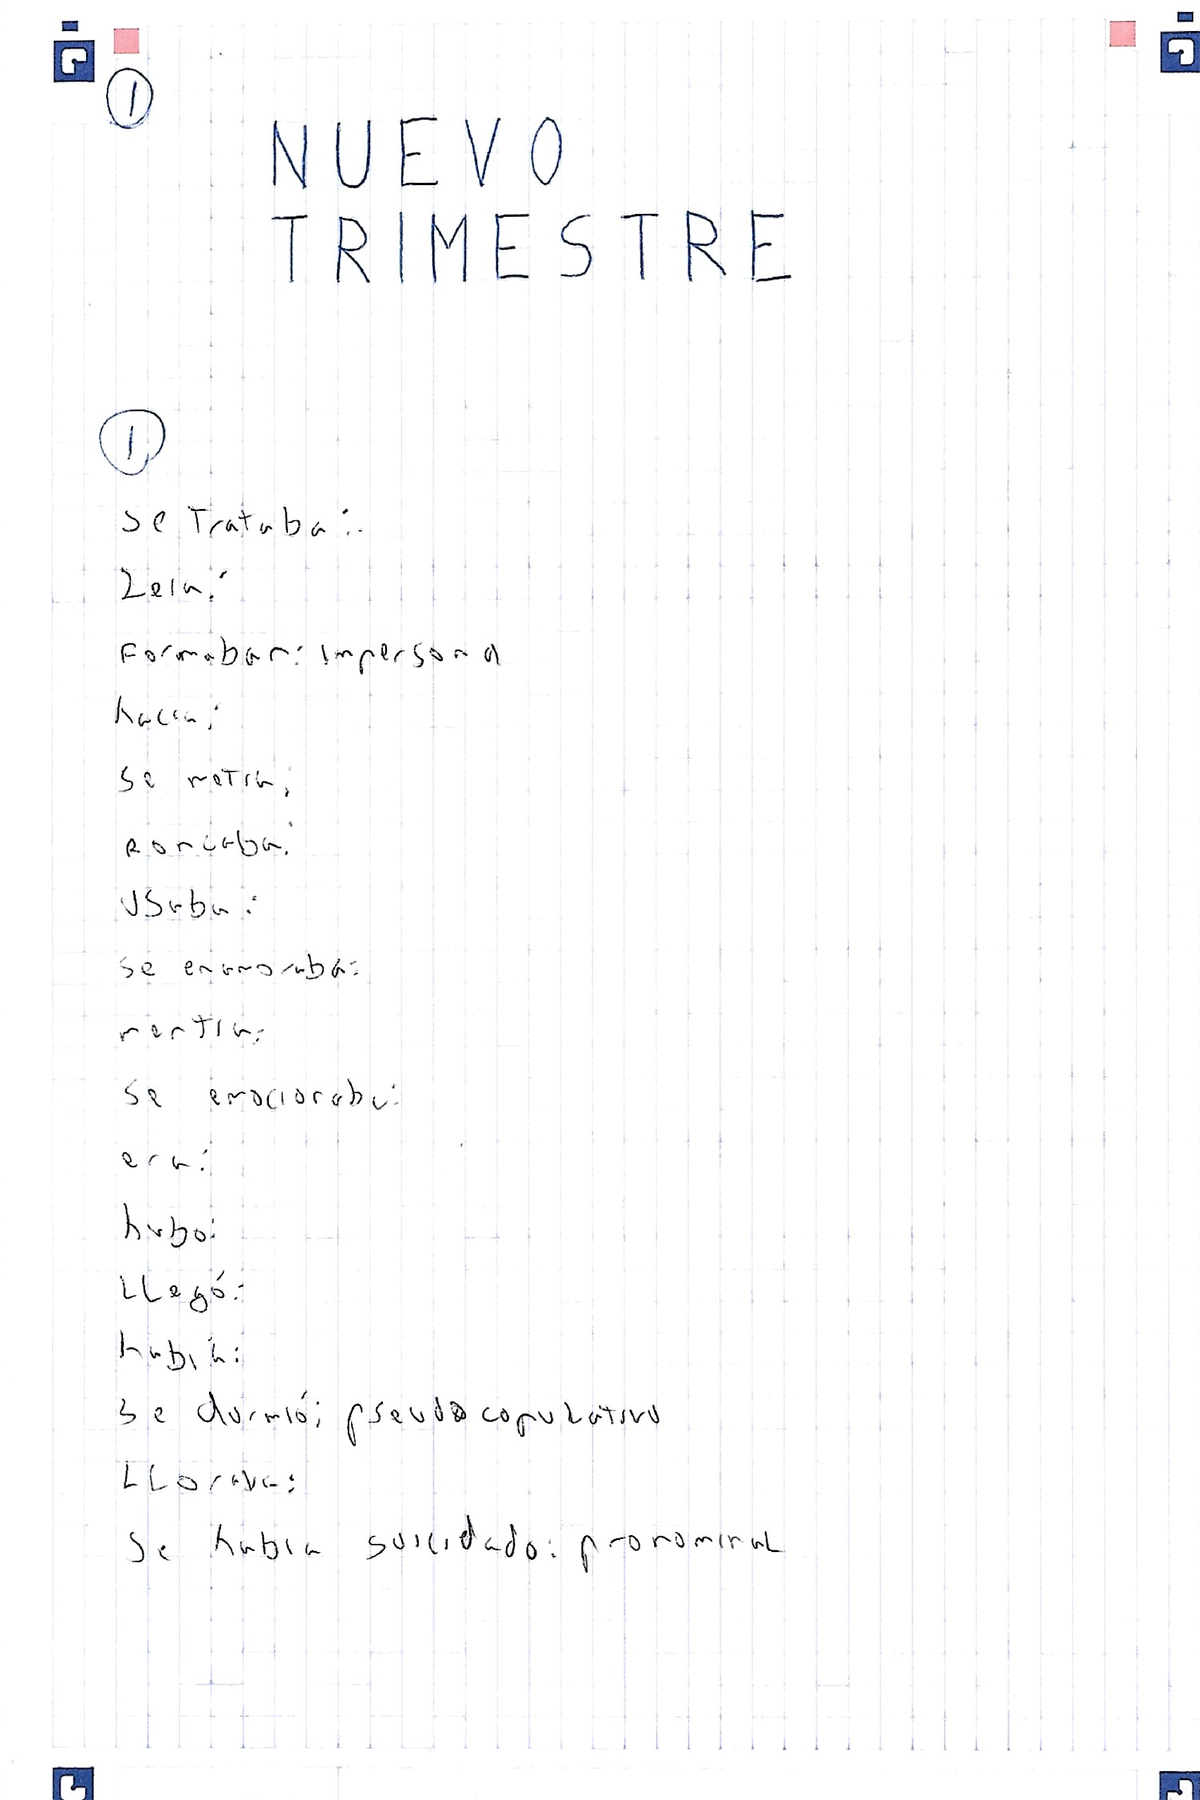 1
NUEVO
TRIMESTRE
1
se Trataba:
Leia:
Formaban: impersonal
hacia:
se metia:
Roncaba:
Usaba:
se enamoraba:
mentia:
se emocionaba:
era:
hubo:
LLegó:
había:
se durmió: pseudocopulativo
LLorava:
Se habia suicidado: pronominal